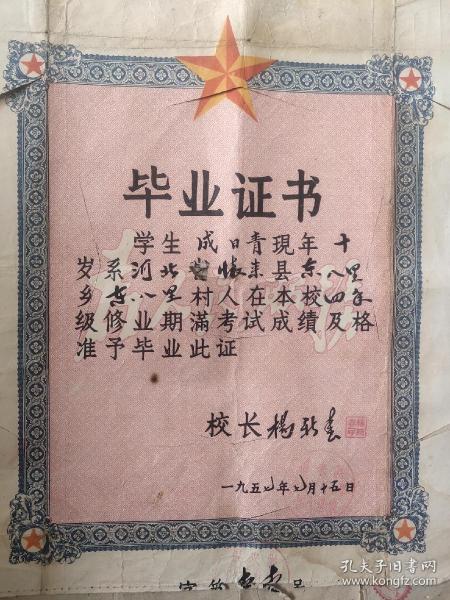 毕业证书
学生 成日青 现年 十
岁系河北省怀来县东八里
乡东八里村人在本校四年
级修业期滿考试成绩及格
准予毕业此证
校长 楊
一九五七年七月十五日
字第 号
孔夫子旧书网